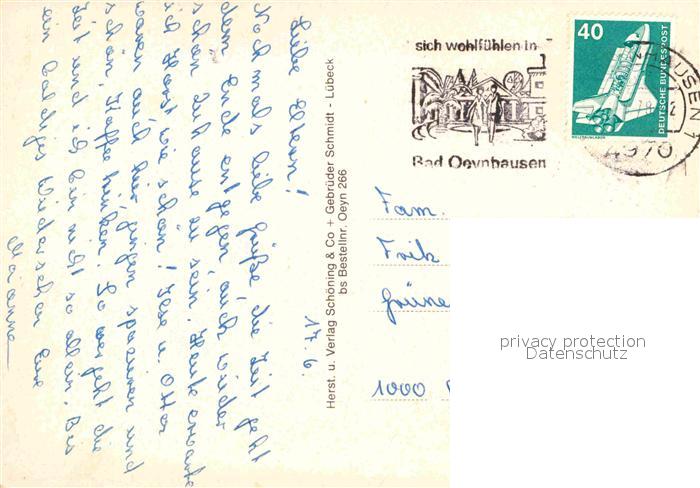 17.6.
Liebe Eltern!
Noch mals liebe Grüße, die Zeit geht
dem Ende entgegen, auch wieder
schön zu Hause zu sein. Heute erwarte
ich Horst wie schön! Ilse u. Otto
waren auch hier, gingen spazieren und
schön Kaffee trinken. So vergeht die
Zeit und ich bin nicht so allein. Bis
ein baldiges Wiedersehen Eure
Marianne
Herst. u. Verlag Schöning & Co + Gebrüder Schmidt - Lübeck
bs Bestellnr. Oeyn 266
sich wohlfühlen in
Bad Oeynhausen
40
DEUTSCHE BUNDESPOST
WELTRAUMLABOR
4970
Fam.
Fritz
Grüne
1000
privacy protection
Datenschutz